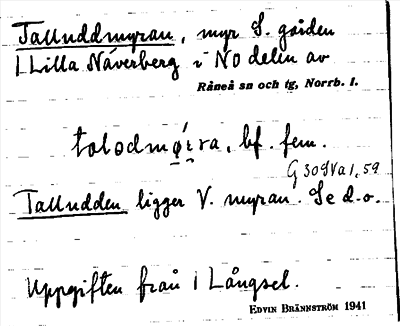 Talluddmyran, myr S. gården
1 Lilla Näverberg i NO delen av
Råneå sn och tg, Norrb. l.
talodmøira, bf. fem.
G 309 Va 1, 59
Talludden ligger V. myran. Se d.o.
Uppgiften från 1 Långsel.
EDVIN BRÄNNSTRÖM 1941